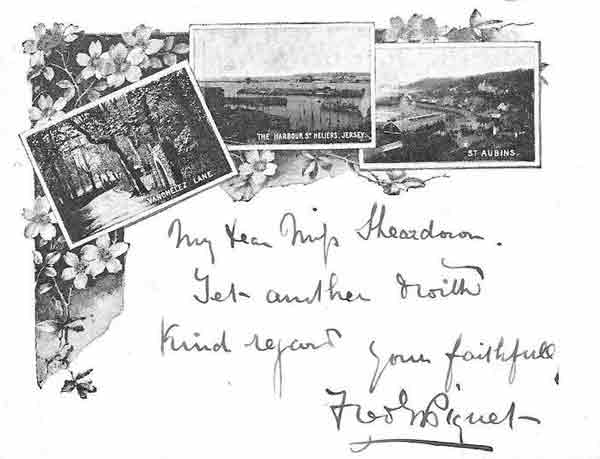 THE HARBOUR ST HELIERS, JERSEY.
ST AUBINS.
VANCHELEZ LANE.
My dear Miss Sheardown.
Yet another & with
Kind regard
Yours faithfully
Fred W Piquet